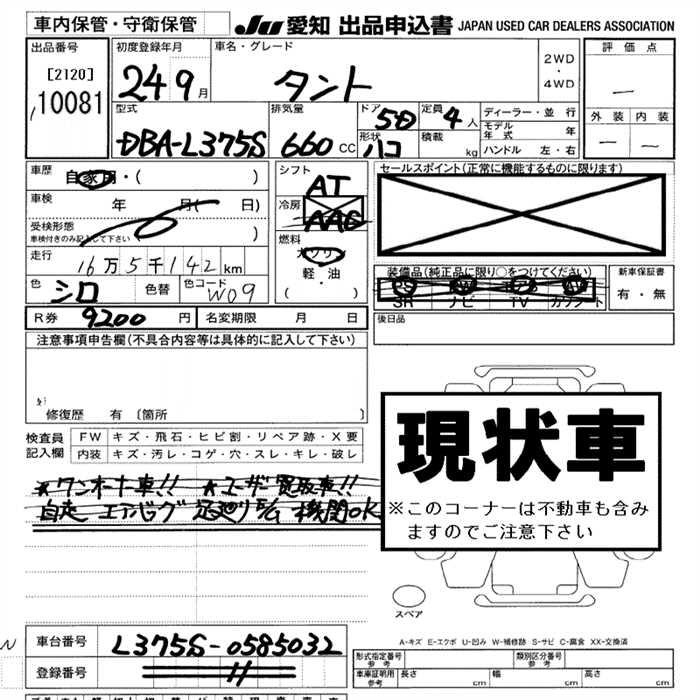 車内保管・守衛保管
JU 愛知 出品申込書 JAPAN USED CAR DEALERS ASSOCIATION
出品番号
[2120]
10081
初度登録年月
24 9月
車名・グレード
タント
2WD
・
4WD
評価点
－
外装 内装
－ －
型式
DBA-L375S
排気量
660cc
ドア
5D
形状
ハコ
定員
4人
積載
kg
ディーラー・並行
モデル年式 年
ハンドル 左・右
車歴
自家用・( )
車検 年 月( 日)
受検形態
車検付きのみ記入して下さい )
走行
16万5千142km
色
シロ
色替
色コード
W09
シフト
AT
冷房
AAC
燃料
ガソリン
軽・油
( )
セールスポイント(正常に機能するものに限ります)
装備品(純正品に限り○をつけてください)
PS PW エアB AW
SR ナビ TV カワシート
新車保証書
有・無
後日品
R券 9200円 名変期限 月 日
注意事項申告欄(不具合内容等は具体的に記入して下さい)
修復歴 有 〔箇所 〕
検査員
記入欄
FW キズ・飛石・ヒビ割・リペア跡・X要
内装 キズ・汚レ・コゲ・穴・スレ・キレ・破レ
*ワンオーナ車!! *ユーザー買取車!!
自走 エアバッグ 足廻り 機関OK
現状車
※このコーナーは不動車も含み
ますのでご注意下さい
スペア
A-キズ E-エクボ U-凹み W-補修跡 S-サビ C-腐食 XX-交換済
車台番号 L375S-0585032
登録番号 〃
形式指定番号
参考
類別区分番号
参考
車庫証明用
参考
長さ cm 幅 cm 高さ cm